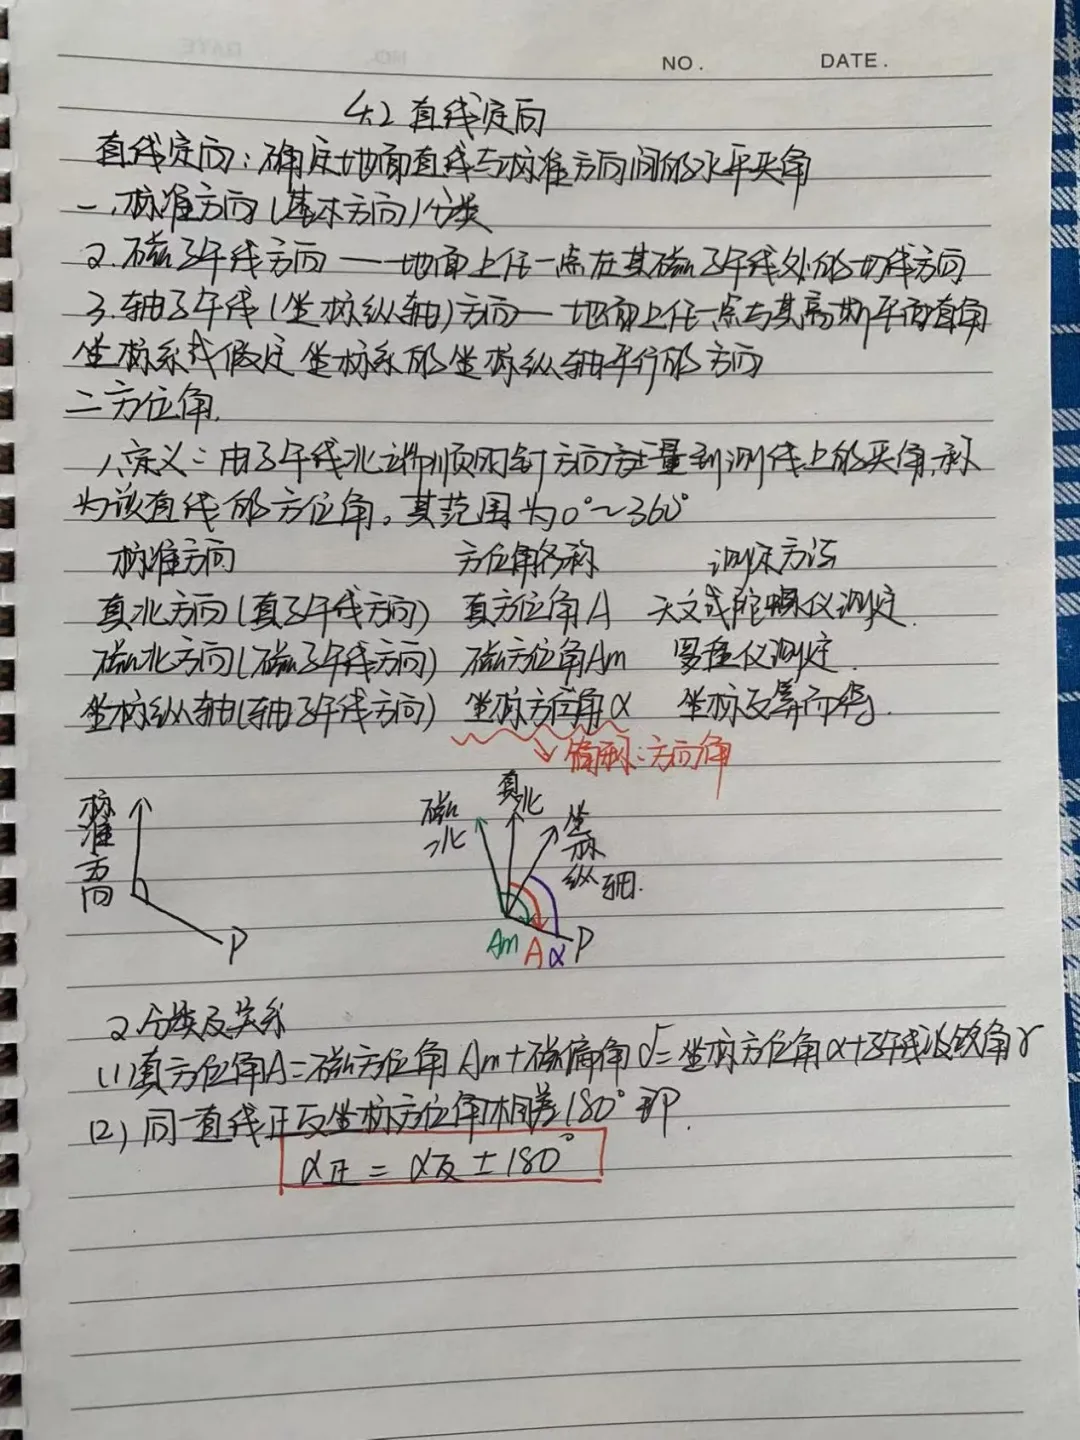 NO. DATE.
4.2 直线定向
直线定向:确定地面直线与标准方向间的水平夹角
一、标准方向(基本方向)分类
2.磁子午线方向——地面上任一点在其磁子午线处的切线方向
3.轴子午线(坐标纵轴)方向—地面上任一点与其高斯平面直角
坐标系或假定坐标系的坐标纵轴平行的方向
二方位角.
1、定义:由子午线北端顺时针方向方量到测线上的夹角,称
为该直线的方位角。其范围为0°~360°
标准方向 方位角名称 测定方法
真北方向(真子午线方向) 真方位角A 天文或陀螺仪测定.
磁北方向(磁子午线方向) 磁方位角Am 罗盘仪测定.
坐标纵轴(轴子午线方向) 坐标方位角α 坐标反算而得.
简称:方向角
标准方向
P
磁北
真北
坐标纵轴.
Am A α P
2.分类及关系
(1)真方位角A=磁方位角Am+磁偏角δ=坐标方位角α+子午线收敛角γ
(2)同一直线正反坐标方位角相差180°即.
α正=α反±180°